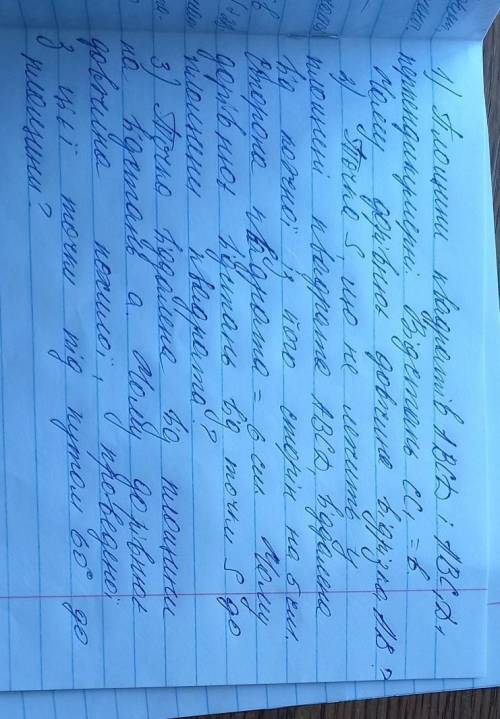 1) Площини квадратів ABCD і ABC₁D₁
перпендикулярні. Відстань CC₁ = b.
Чому дорівнює довжина відрізка AB?
2) Точка S, що не лежить у
площині квадрата ABCD, віддалена
від кожної його сторін на 5 см.
Сторона квадрата = 6 см. Чому
дорівнює відстань від точки S до
площини квадрата?
3) Точка віддалена від площини
на відстань a. Чому дорівнює
довжина похилої, проведеної
з цієї точки під кутом 60° до
площини?